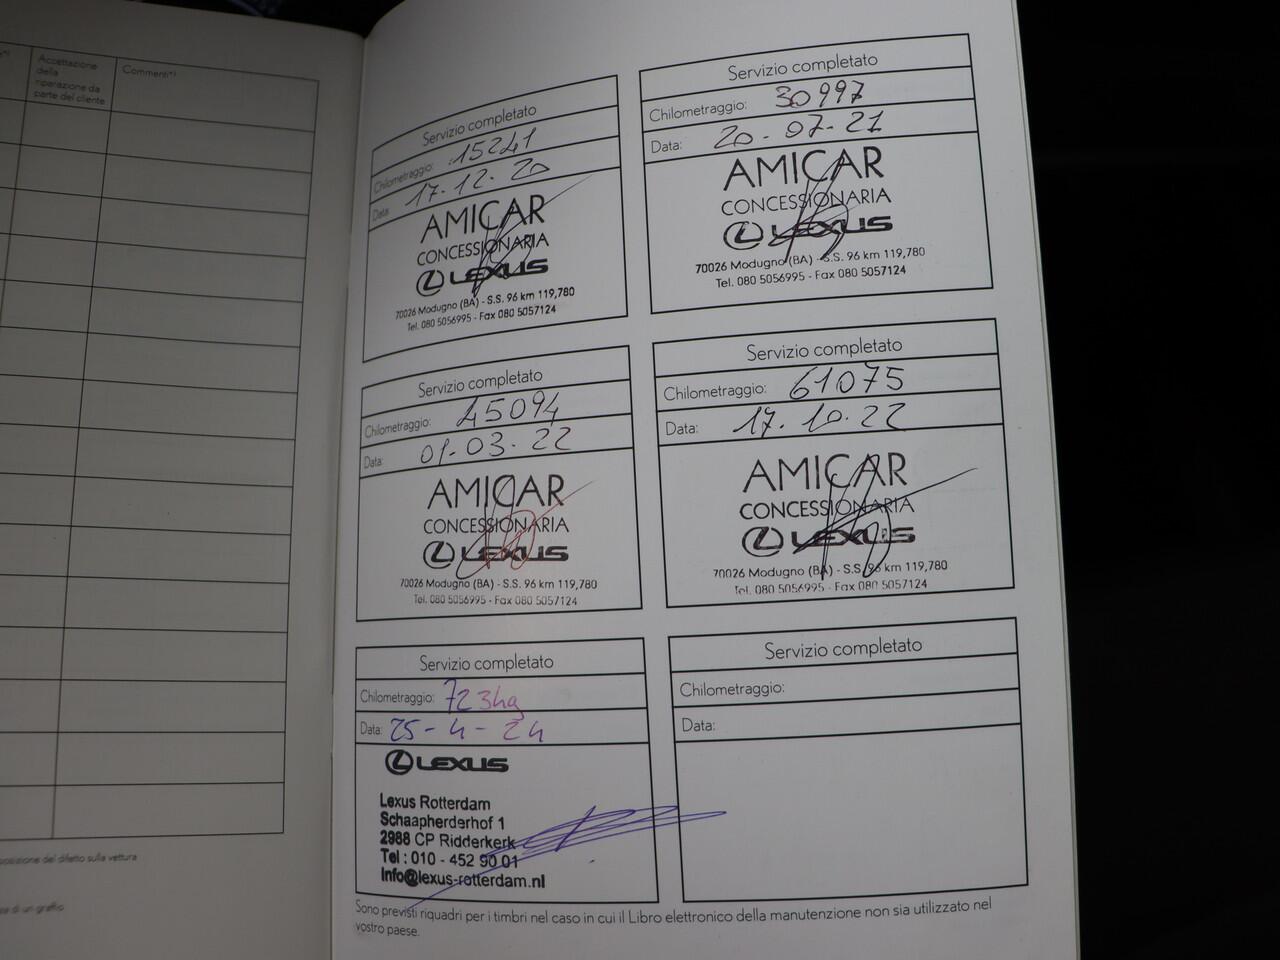 Accettazione
della
riparazione da
parte del cliente
Commenti*¹
Servizio completato
Chilometraggio: 15241
Data: 17-12-20
AMICAR
CONCESSIONARIA
LEXUS
70026 Modugno (BA) - S.S. 96 km 119,780
Tel. 080 5056995 - Fax 080 5057124
Servizio completato
Chilometraggio: 30997
Data: 20-07-21
AMICAR
CONCESSIONARIA
LEXUS
70026 Modugno (BA) - S.S. 96 km 119,780
Tel. 080 5056995 - Fax 080 5057124
Servizio completato
Chilometraggio: 45094
Data: 01-03-22
AMICAR
CONCESSIONARIA
LEXUS
70026 Modugno (BA) - S.S. 96 km 119,780
Tel. 080 5056995 - Fax 080 5057124
Servizio completato
Chilometraggio: 61075
Data: 17-10-22
AMICAR
CONCESSIONARIA
LEXUS
70026 Modugno (BA) - S.S. 96 km 119,780
Tel. 080 5056995 - Fax 080 5057124
Servizio completato
Chilometraggio:
Data: 25-4-24
LEXUS
Lexus Rotterdam
Schaapherderhof 1
2988 CP Ridderkerk
Tel : 010 - 452 90 01
Info@lexus-rotterdam.nl
Servizio completato
Chilometraggio:
Data:
del difetto sulla vettura
di un graffio
Sono previsti riquadri per i timbri nel caso in cui il Libro elettronico della manutenzione non sia utilizzato nel
vostro paese.